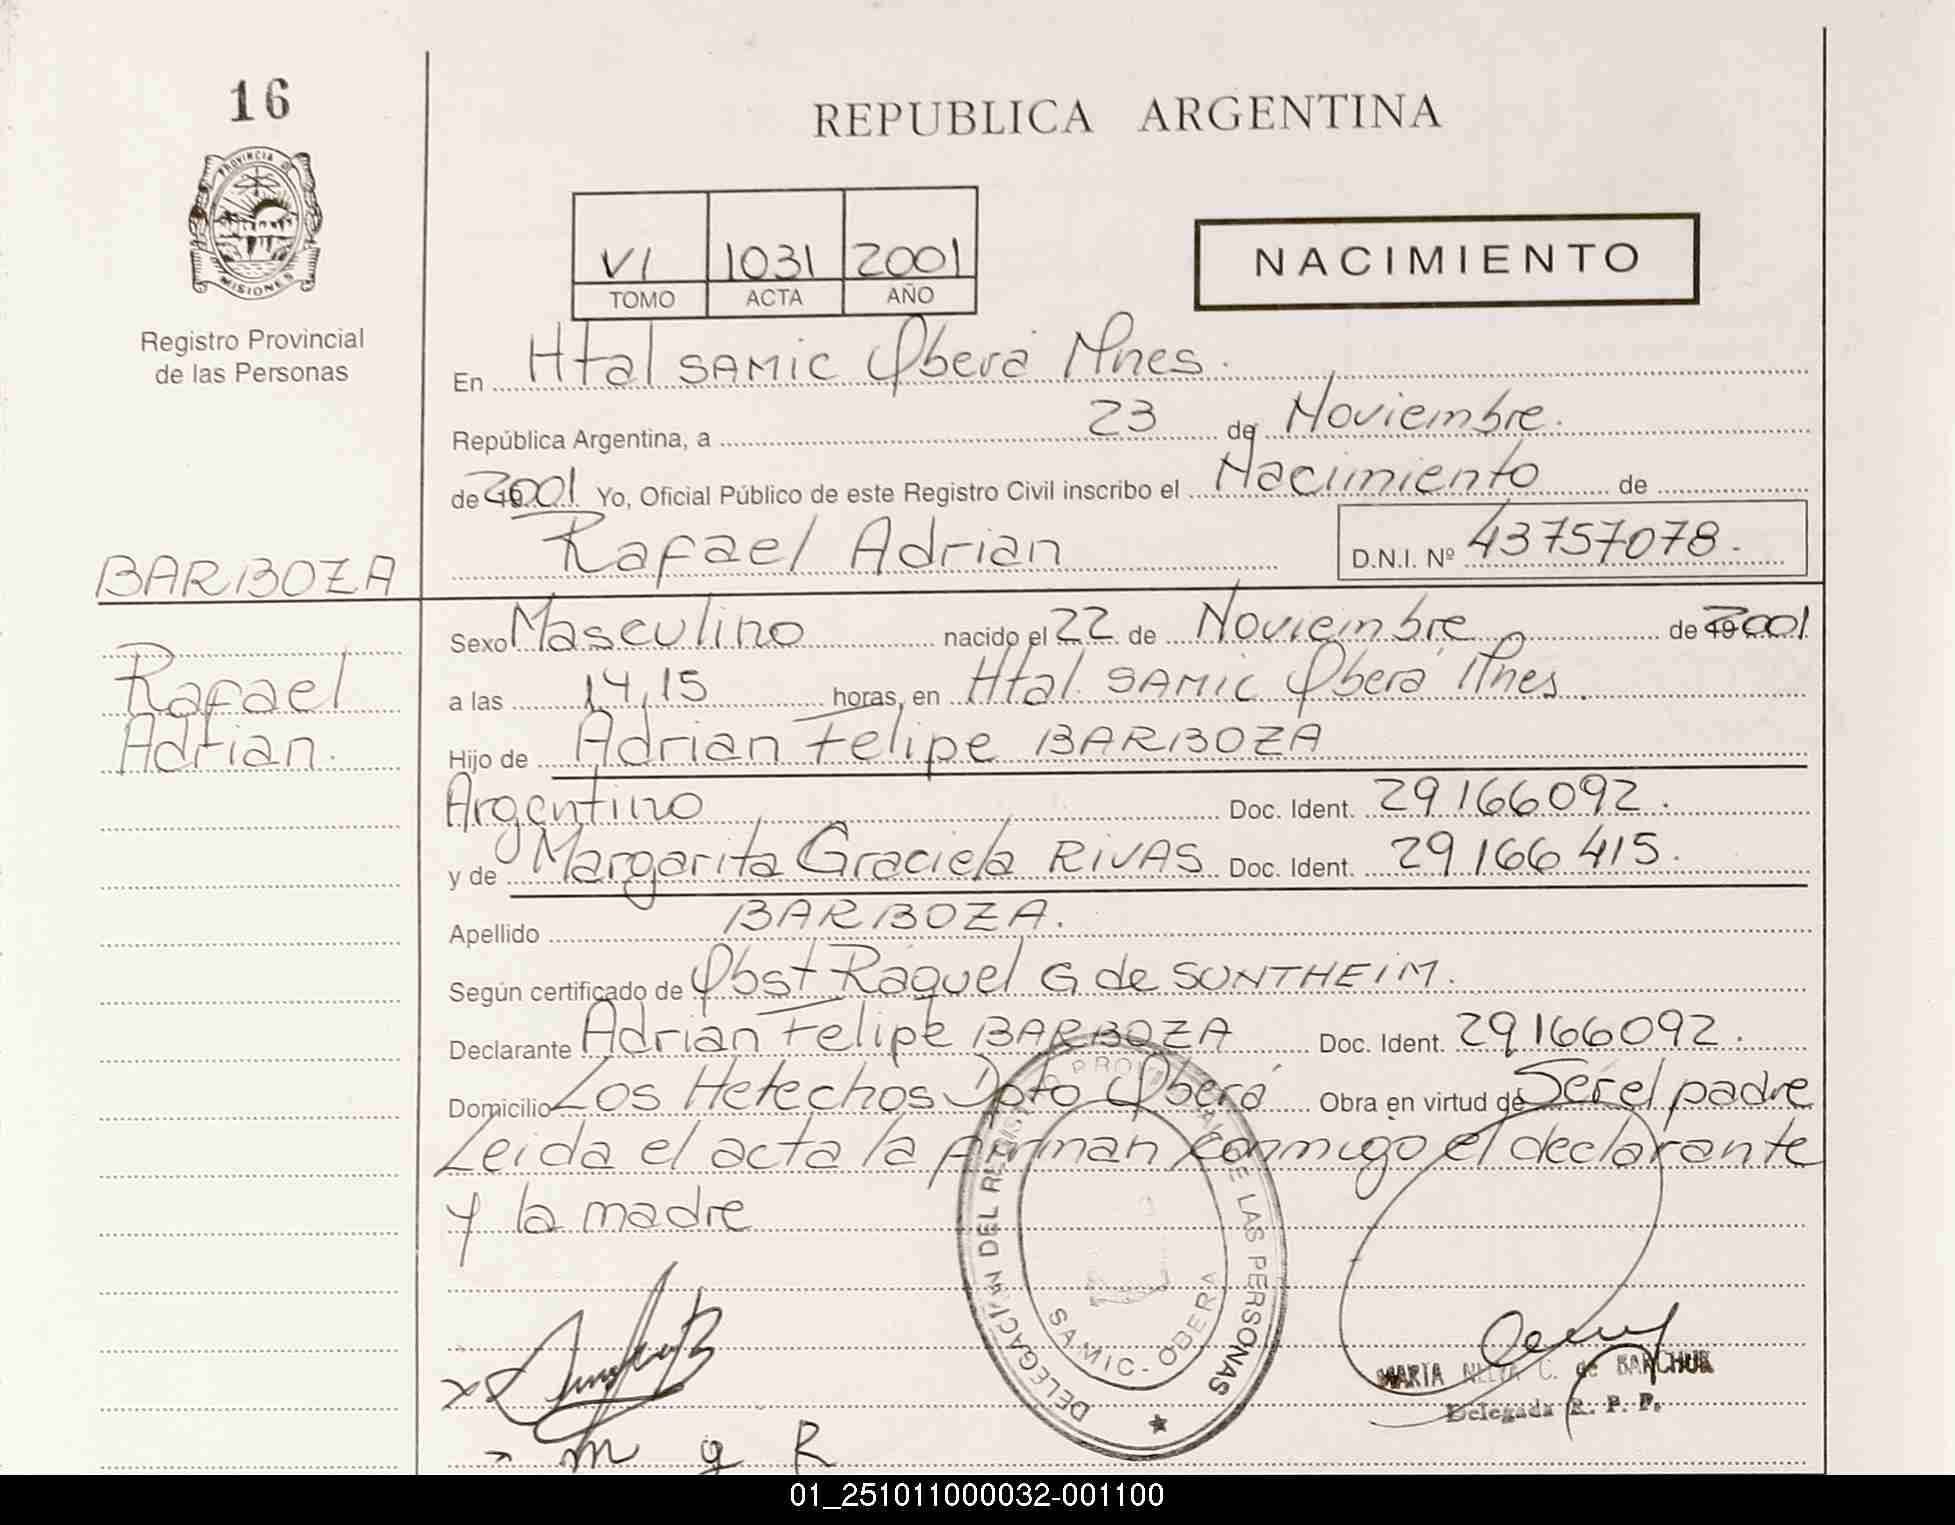 16
REPUBLICA ARGENTINA
PROVINCIA DE
MISIONES
Registro Provincial
de las Personas
VI 1031 2001
TOMO ACTA AÑO
NACIMIENTO
En Htal SAMIC Oberá Mnes.
República Argentina, a 23 de Noviembre.
de 2001 Yo, Oficial Público de este Registro Civil inscribo el Nacimiento de
Rafael Adrian D.N.I. Nº 43757078.
BARBOZA
Rafael
Adrian.
Sexo Masculino nacido el 22 de Noviembre de 19 2001
a las 14,15 horas, en Htal. SAMIC Oberá Mnes.
Hijo de Adrian Felipe BARBOZA
Argentino Doc. Ident. 29166092.
y de Margarita Graciela RIVAS Doc. Ident. 29166415.
Apellido BARBOZA.
Según certificado de Obst Raquel G de SONTHEIM.
Declarante Adrian Felipe BARBOZA Doc. Ident. 29166092.
Domicilio Los Helechos Dpto Oberá Obra en virtud de Ser el padre
Leida el acta la firman conmigo el declarante
y la madre
DELEGACIÓN DEL REGISTRO PROVINCIAL DE LAS PERSONAS
SAMIC - OBERA
MARIA NELIA C. de BARCHUK
Delegada R. P. P.
m g R
01_251011000032-001100